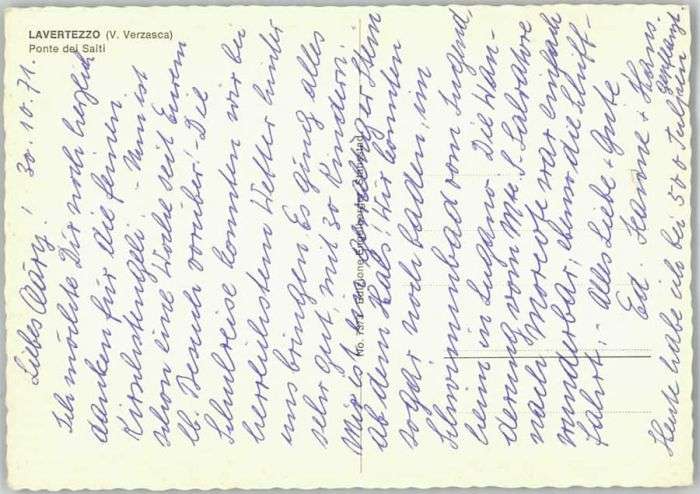 LAVERTEZZO (V. Verzasca)
Ponte dei Salti
No. 7372 Edizione
Liebes Märy, 30.10.71.
Ich möchte Dir noch herzlich
danken für die feinen
Kirschstengeli. - Nun ist
schon eine Woche seit Eurem
lb Besuch vorüber! - Die
Schulreise konnten wir bei
herrlichstem Wetter hinter
uns bringen. Es ging alles
sehr gut, mit 30 Kindern!
Mir ist ein Stein
ab dem Hals! Wir konnten
sogar noch baden, im
Schwimmbad vom Jugend
heim in Lugano. Die Wan-
derung vom Mte S. Salvatore
nach Morcote war einfach
wunderbar, ebenso die Schiff-
fahrt! - Alles Liebe + Gute
Ed. Jeanne + Hans.
Heute habe ich bei 500 Tulpen gepflanzt.